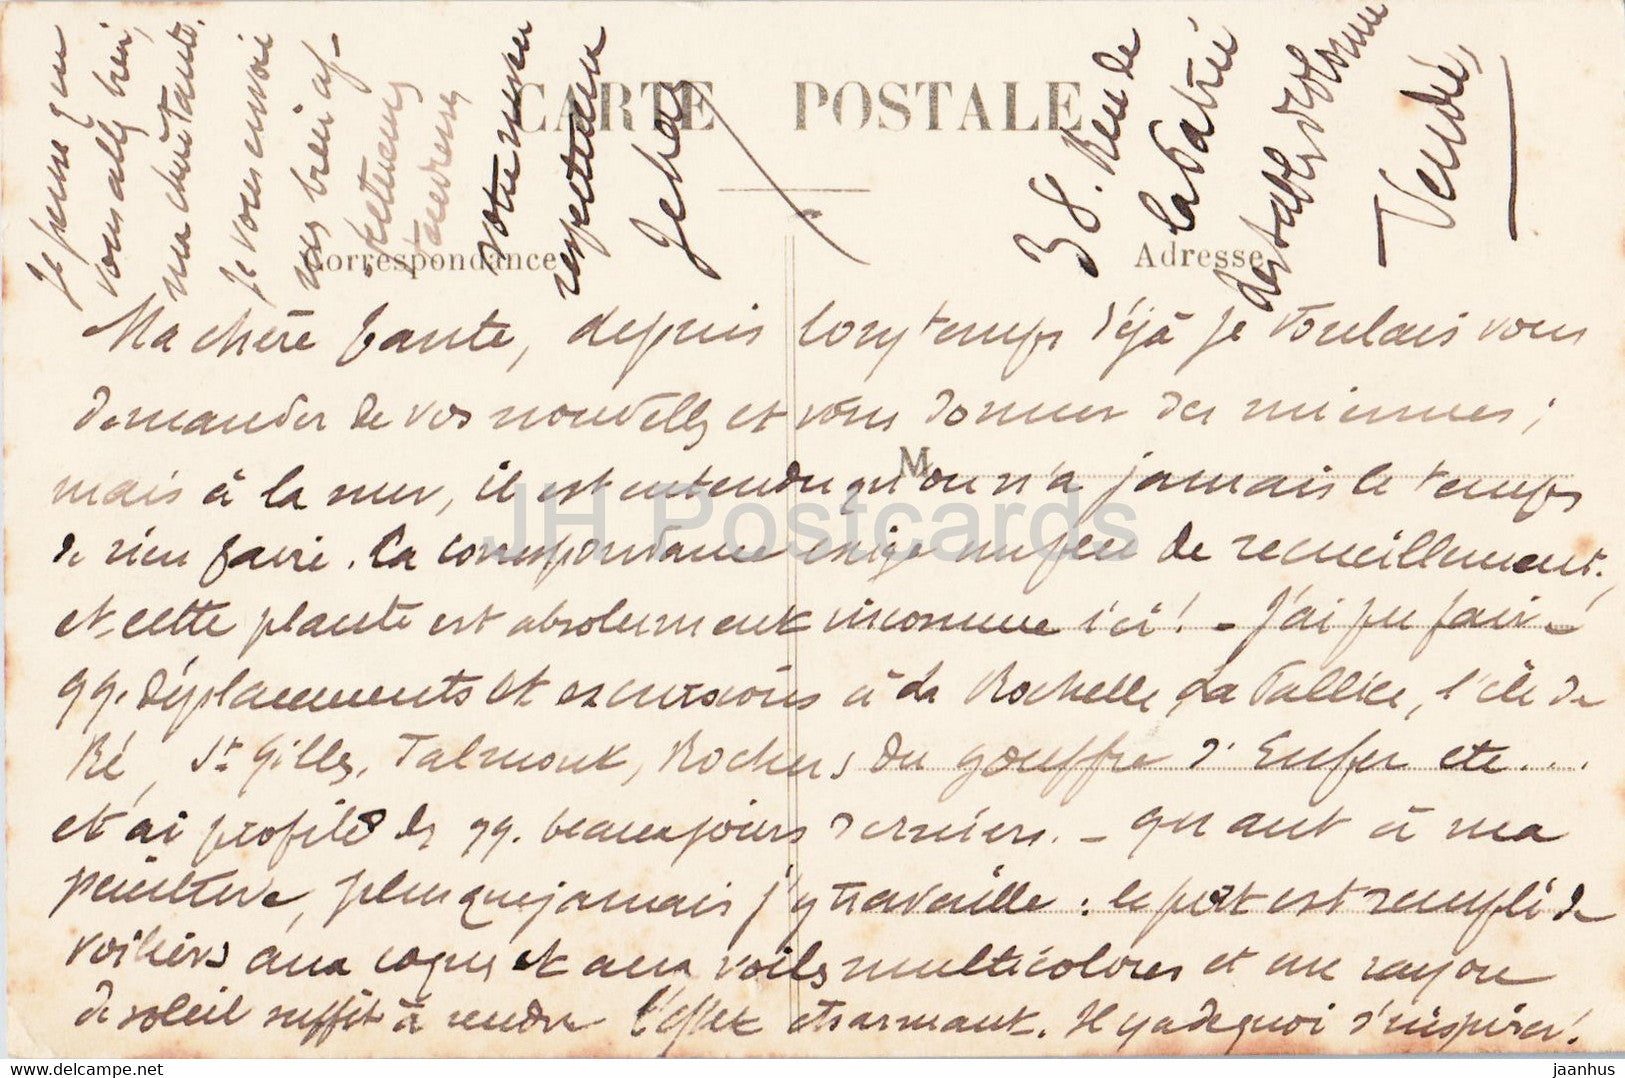 CARTE POSTALE
Correspondance
Adresse
M
38. Rue de
la Patrie
des Sables d'Olonne
Vendée,
Ma chère tante, depuis longtemps déjà je voulais vous
demander de vos nouvelles et vous donner des miennes;
mais à la mer, il est entendu qu'on n'a jamais le temps
de rien faire. La correspondance exige un peu de recueillement,
et cette plante est absolument inconnue ici! - J'ai pu faire
qq. déplacements et excursions à La Rochelle, La Pallice, l'île de
Ré, St Gilles, Talmont, Rochers du gouffre d'Enfer etc...
et ai profité des qq. beaux jours derniers. - quant à ma
peinture, plus que jamais j'y travaille: le port est rempli de
voiliers aux coques et aux voiles multicolores et un rayon
de soleil suffit à rendre l'effet charmant. Il y a de quoi s'inspirer!
Je pense que
vous allez bien,
ma chère tante.
Je vous envoie
mes bien af-
fectueuses
tendresses
votre neveu
respectueux
Jehan
JH Postcards
jaanhus